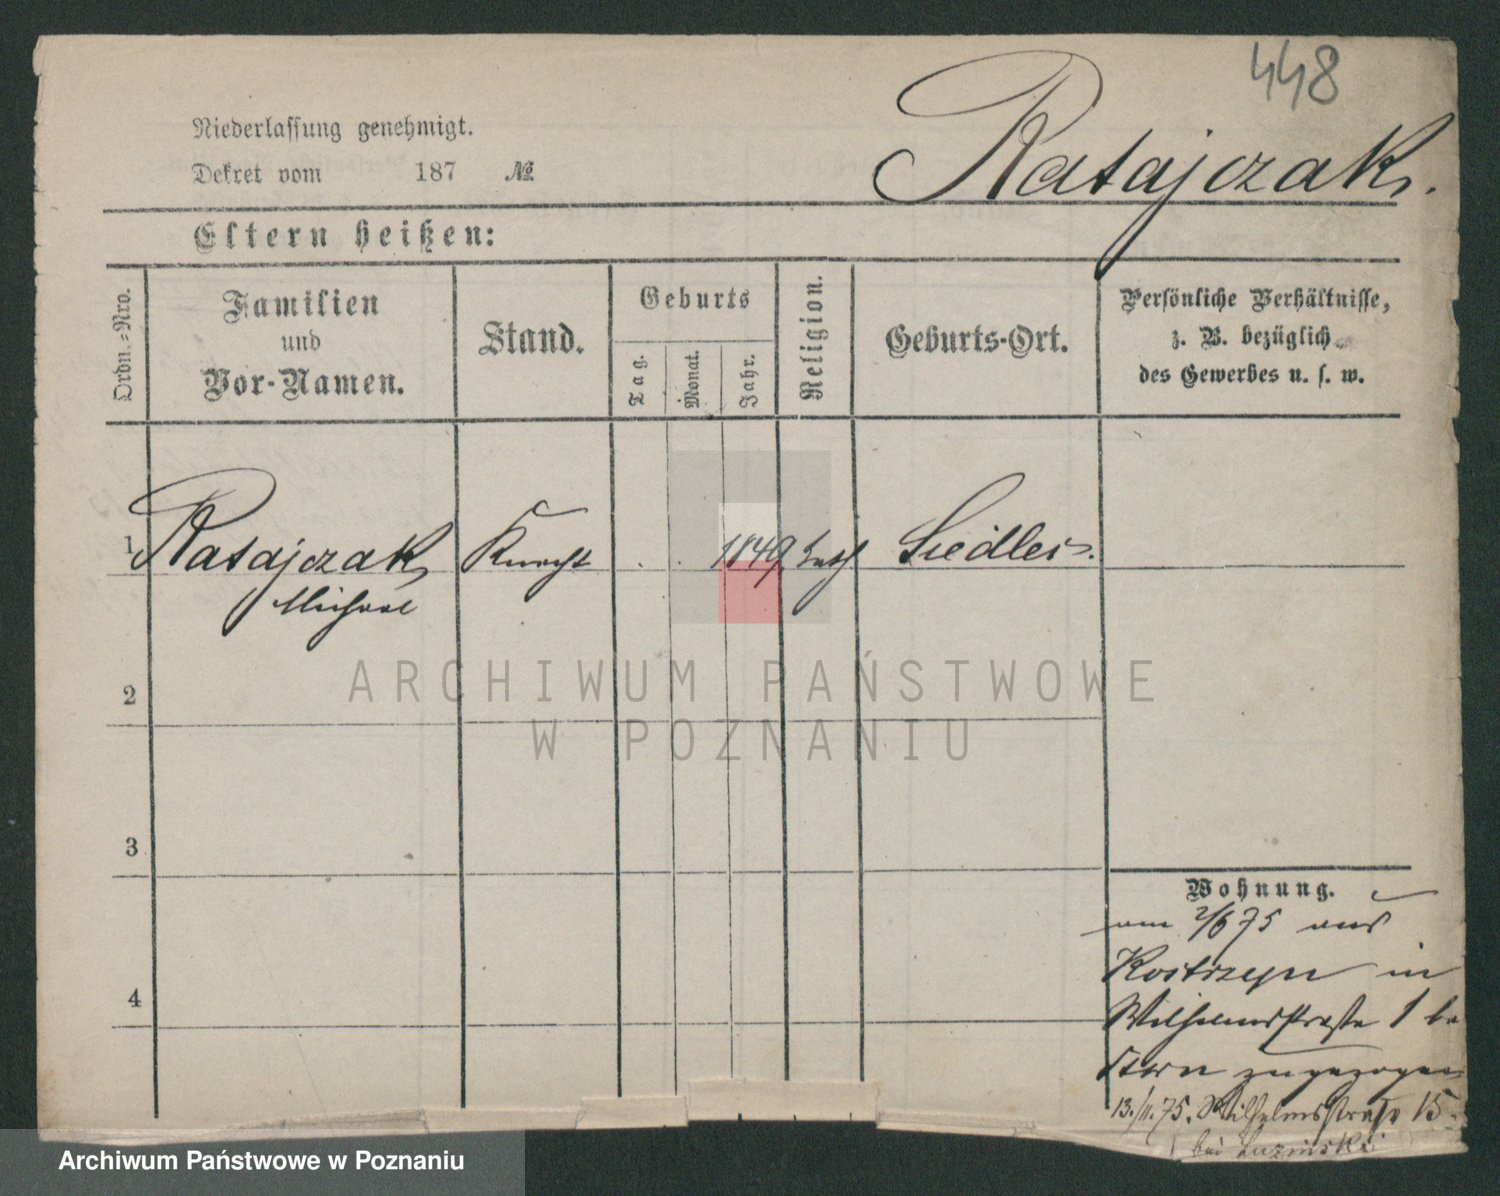 448
Niederlassung genehmigt.
Dekret vom 187 №
Ratajczak.
Eltern heißen:
Ordn.-Nro.
Familien
und
Vor-Namen.
Stand.
Geburts
Tag.
Monat.
Jahr.
Religion.
Geburts-Ort.
Persönliche Verhältnisse,
z. B. bezüglich
des Gewerbes u. s. w.
1 Ratajczak Knecht . . 1849 kath Siedlec.
Michael
ARCHIWUM PAŃSTWOWE
W POZNANIU
2
3
4
Wohnung.
am 2/6 75 aus
Kostrzyn in
Wilhelmstraße 1 bei
Stern zugezogen
13./11. 75. Wilhelmsstraße 15.
bei
Archiwum Państwowe w Poznaniu